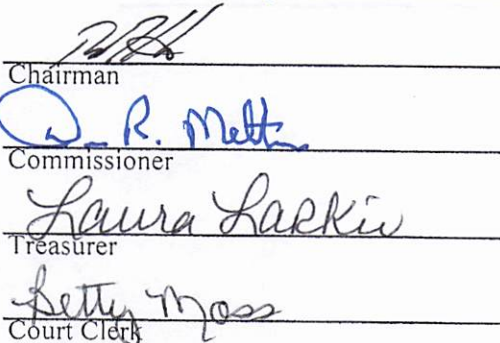 Chairman
R. Melton
Commissioner
Laura Larkin
Treasurer
Betty Moss
Court Clerk